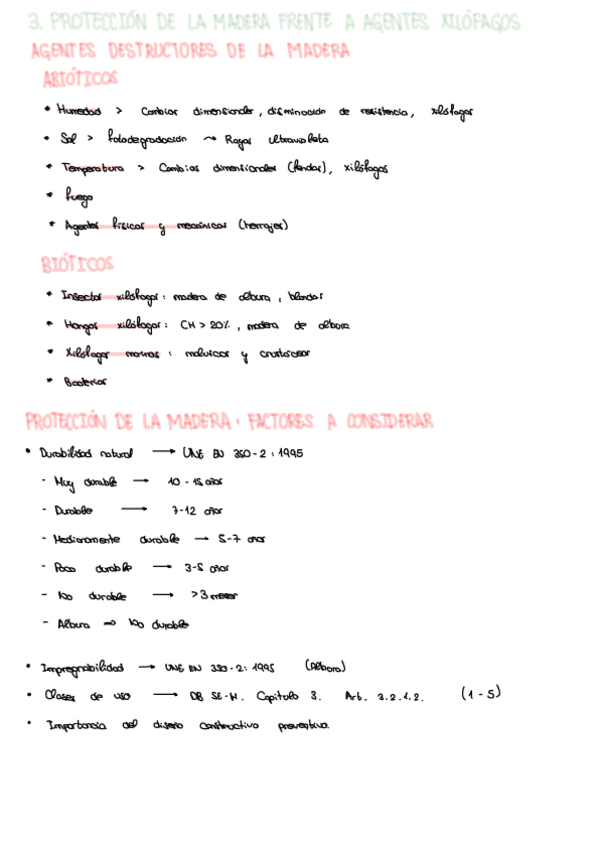 3. PROTECCIÓN DE LA MADERA FRENTE A AGENTES XILÓFAGOS
AGENTES DESTRUCTORES DE LA MADERA
ABIÓTICOS
* Humedad > Cambios dimensionales, disminución de resistencia, xilófagos
* Sol > fotodegradación → Rayos Ultravioleta
* Temperatura > Cambios dimensionales (fendas), xilófagos
* Fuego
* Agentes físicos y mecánicos (herrajes)
BIÓTICOS
* Insectos xilófagos: madera de albura, blandas
* Hongos xilófagos: CH > 20%, madera de albura
* Xilófagos marinos: moluscos y crustáceos
* Bacterias
PROTECCIÓN DE LA MADERA: FACTORES A CONSIDERAR
• Durabilidad natural → UNE EN 350-2:1995
- Muy durable → 10-15 años
- Durable → 7-12 años
- Medianamente durable → 5-7 años
- Poco durable → 3-5 años
- No durable → >3
- Albura ⇒ No durable
• Impregnabilidad → UNE EN 350-2:1995 (Albura)
• Clases de uso → DB SE-M. Capítulo 3. Art. 3.2.1.2. (1-5)
• Importancia del diseño constructivo preventivo.